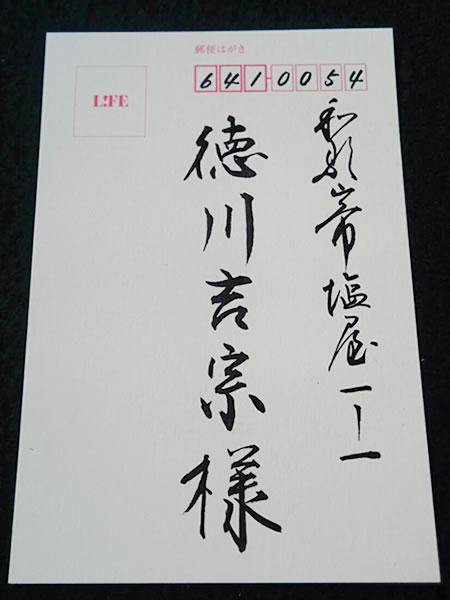 郵便はがき
6410054
L!FE
和歌山市塩屋一ー一
徳川吉宗様